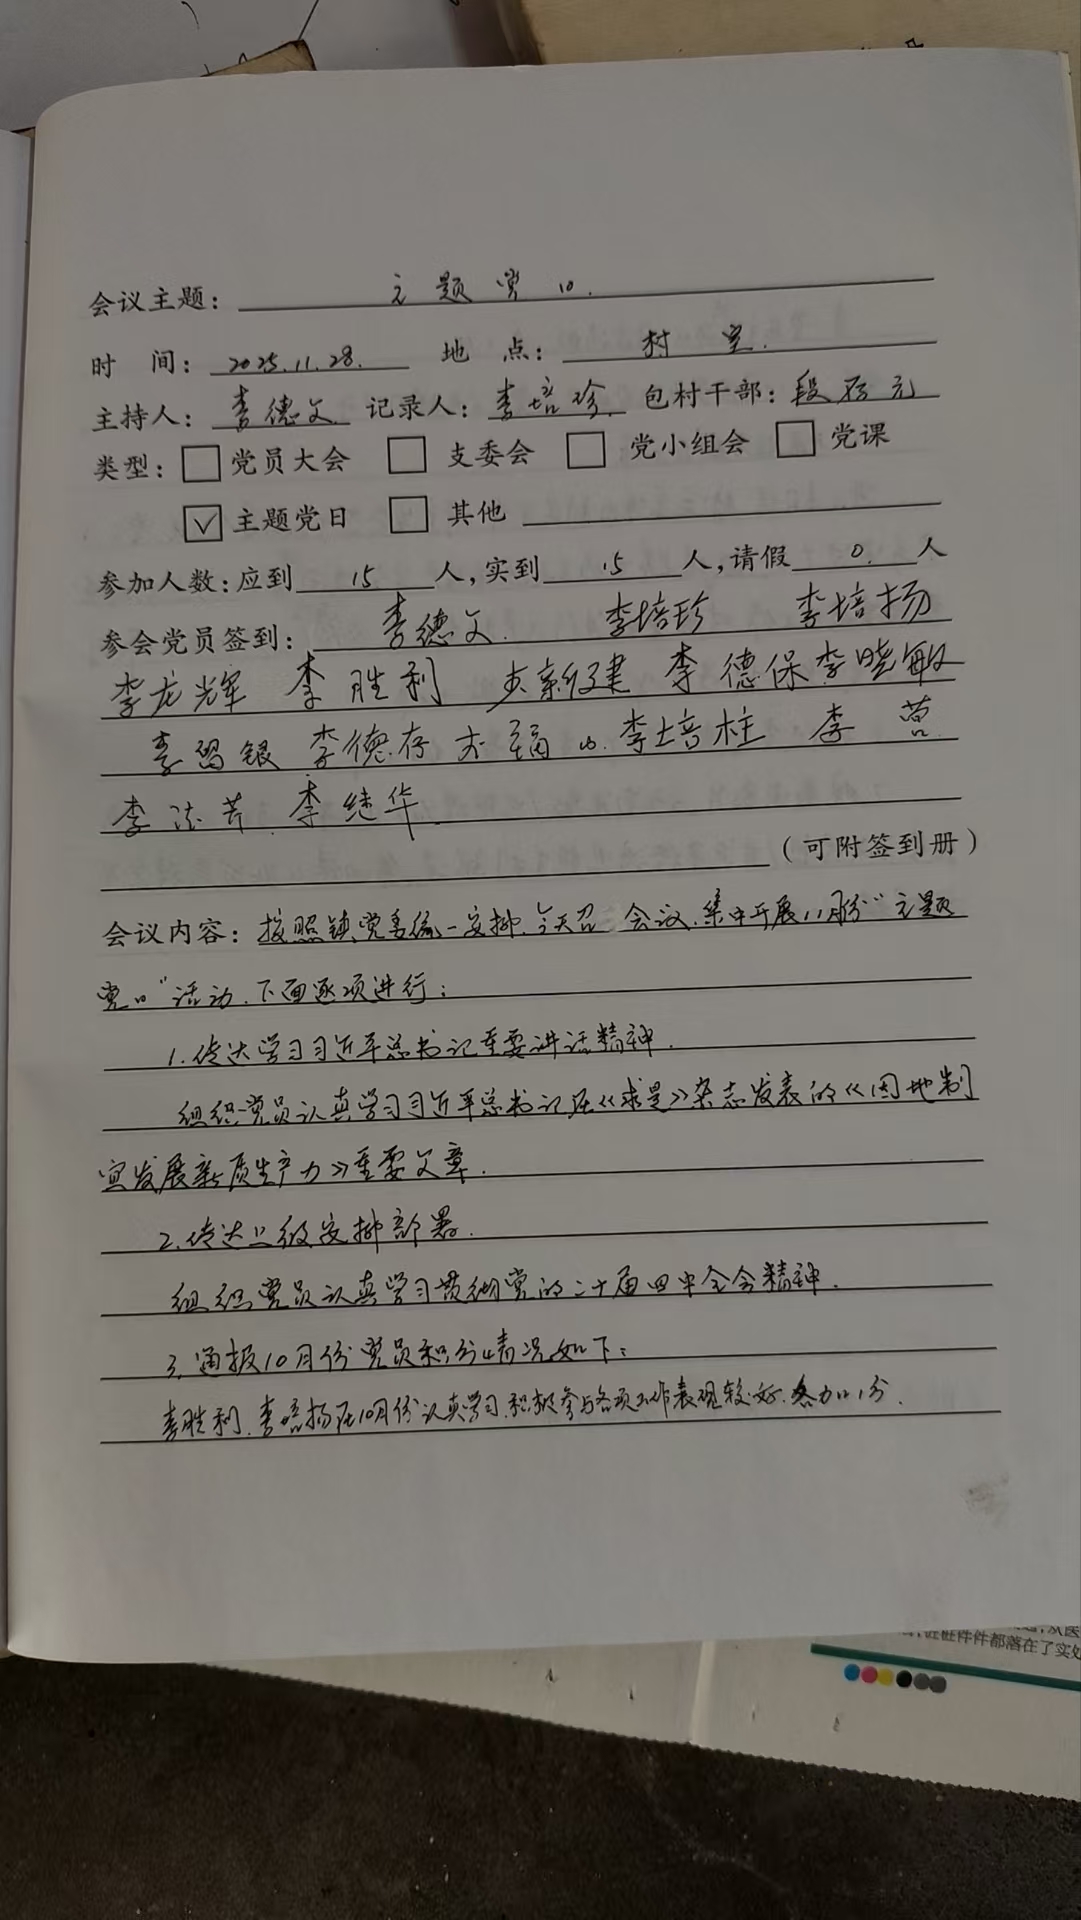 会议主题： 主题党日.
时 间： 2025.11.28. 地 点： 村室.
主持人： 李德文 记录人： 李培珍. 包村干部： 段存元
类型： 党员大会 支委会 党小组会 党课
√ 主题党日 其他
参加人数：应到 15 人，实到 15 人，请假 0. 人
参会党员签到： 李德文. 李培珍 李培扬
李龙辉 李胜利 新建 李德保 李晓敏
李留银 李德存 李培柱 李
李 李继华
（可附签到册）
会议内容：按照镇党委统一安排.今天召 会议.集中开展11月份“主题
党日”活动.下面逐项进行：
1.传达学习习近平总书记重要讲话精神.
组织党员认真学习习近平总书记在《求是》杂志发表的《因地制
宜发展新质生产力》重要文章.
2.传达上级安排部署.
组织党员认真学习贯彻党的二十届四中全会精神.
3.通报10月份党员积分情况如下：
李胜利.李培扬在10月份认真学习.积极参与各项工作表现较好.各加1分.
件件都落在了实处